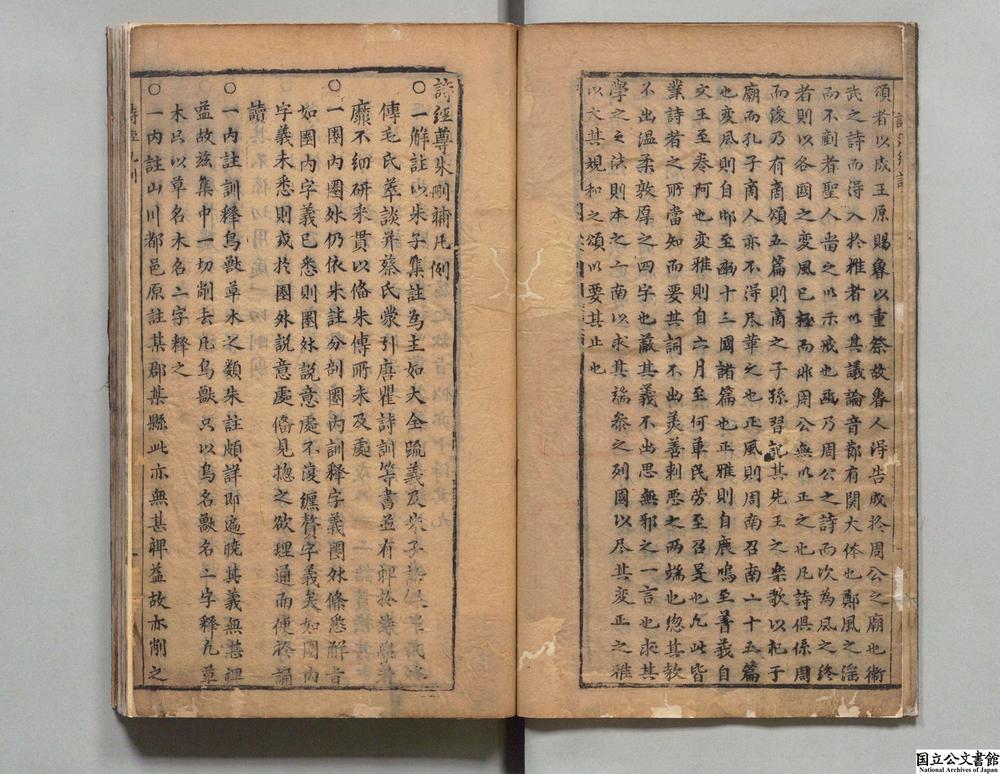 頌者以成王原賜魯以重祭故魯人得告成於周公之廟也衛
武之詩而得入於雅者以其議論音節有関大体也鄭風之淫
而不刪者聖人畨之以示戒也豳乃周公之詩而次為凨之終
者則以各國之変風已極而非周公無以正之也凡詩俱係周
而後乃有商頌五篇則商之子孫習記其先王之樂歌以祀于
廟而孔子商人亦不得尽華之也正風則周南召南二十五篇
也変風則自邶至豳十三國諸篇也正雅則自鹿鳴至菁莪自
文王至卷阿也变雅則自六月至何草民劳至召旻也凡此皆
業詩者之所當知而要其詞不出美善刺悪之两端也惣其教
不出温柔敦厚之四字也蔽其義不出思無邪之一言也求其
學之之法則本之二南以求其端参之列國以尽其变正之雅
以大其規和之頌以要其止也
詩經尊朱刪補凡例
○一解註以朱子集註為主如大全䟽義及
傳毛氏萃談并蔡氏蒙引唐瞿詩訓等書並有裨於
靡不細研采貫以俻朱傳所未及處
○一圏内圏外仍依朱註分剖圏内訓释字義圏外條悉解旨
如圏内字義已悉則圏外説意處不復纏贅字義矣如圏内
字義未悉則或於圏外説意處俻見惣之欲理通而便於誦
讀
○一内註訓释鳥獸草木之類朱註頗詳即遍暁其義無甚裨
益故兹集中一切削去凡鳥獸只以鳥名獸名二字释凡草
木只以草名木名二字释之
○一内註山川都邑原註某郡某縣此亦無甚裨益故亦削之
国立公文書館
National Archives of Japan